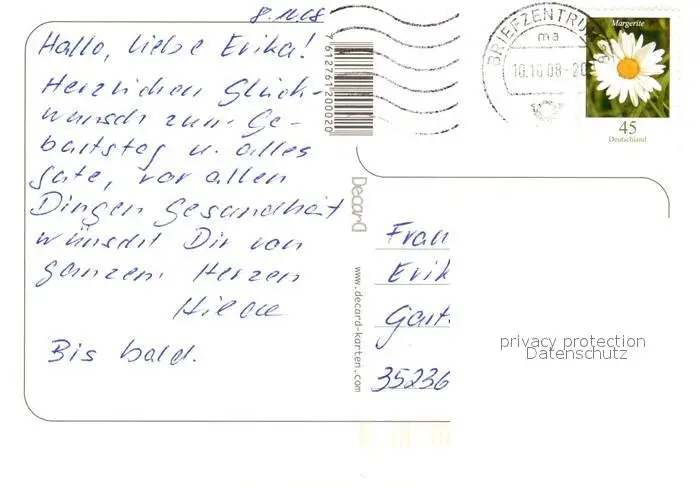 8.10.08
Hallo, liebe Erika!
Herzlichen Glück-
wunsch zum Ge-
burtstag u. alles
gute, vor allen
Dingen Gesundheit
wünscht Dir von
ganzem Herzen
Bis bald.
7612761200020
Decard
www.decard-karten.com
BRIEFZENTRUM
ma
10.10.08-20
Margerite
45
Deutschland
Frau
Erik
Gart
35236
privacy protection
Datenschutz